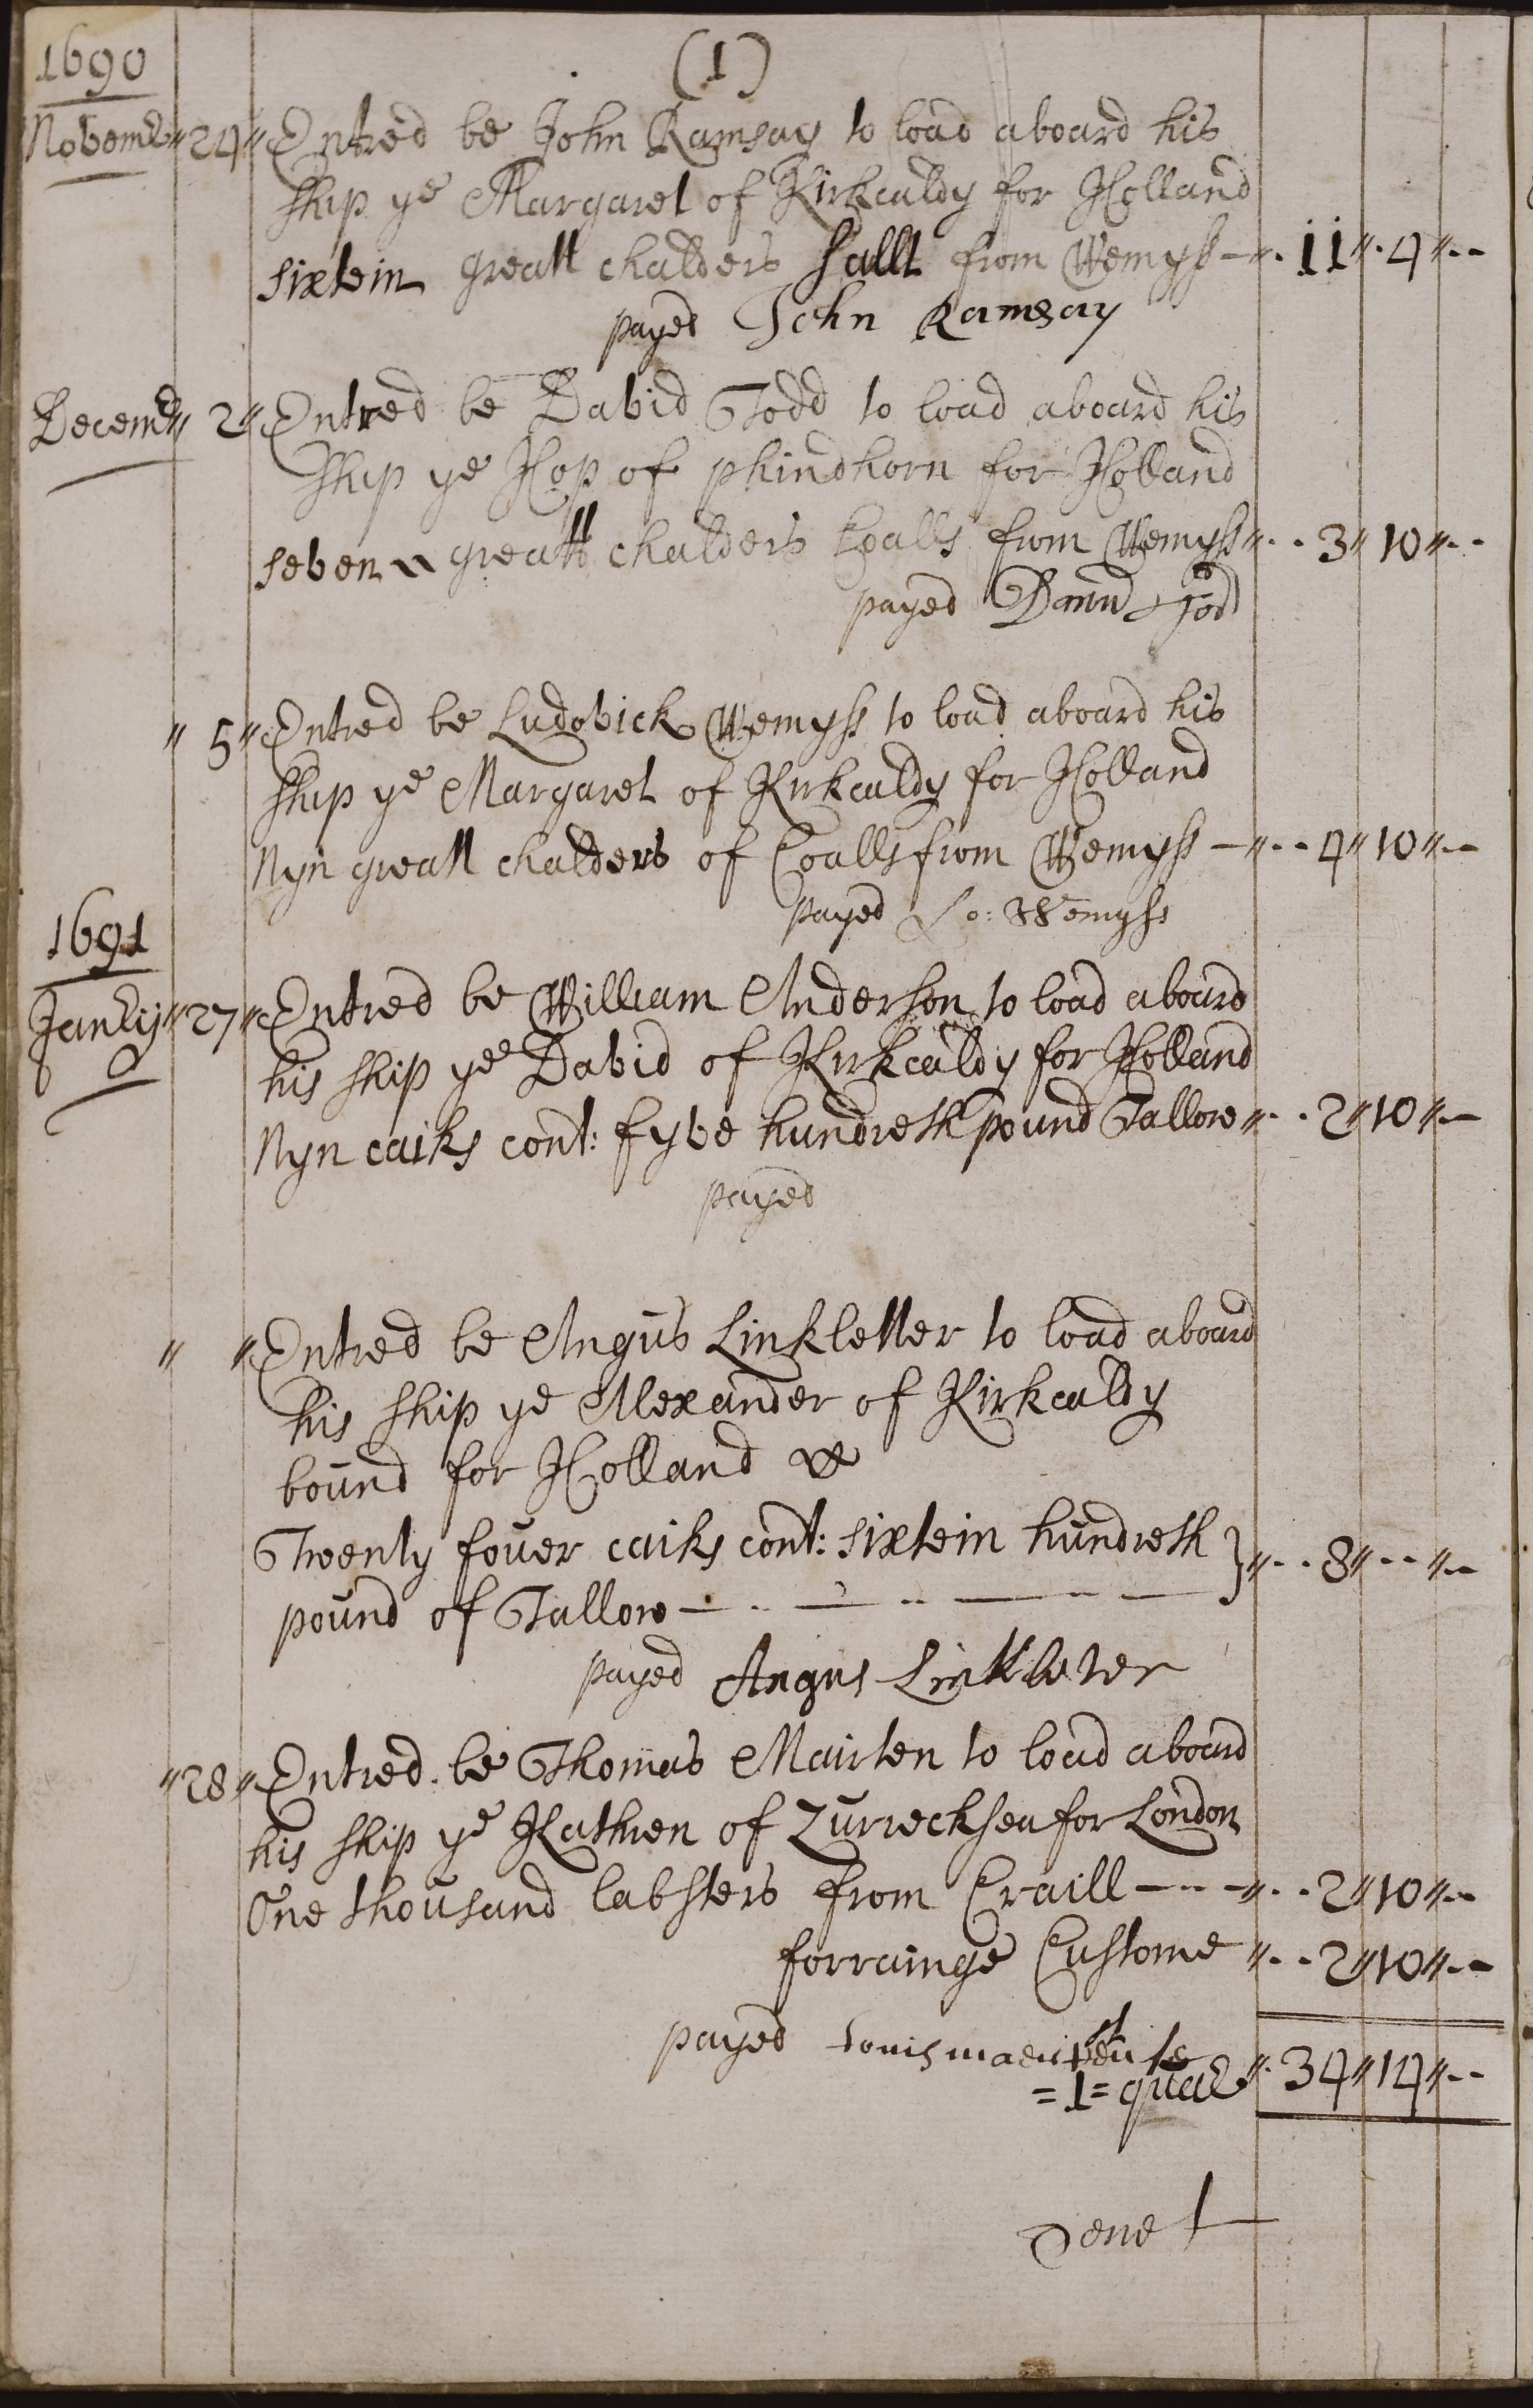 (1)
1690
Novemb 24 Entred be John Ramsay to load aboard his
ship ye Margaret of Kirkcaldy for Holland
sixtein greatt chalders sallt from Wemyss 11 4 --
payed John Ramsay
Decemb 2 Entred be David Todd to load aboard his
ship ye Hop of phindhorn for Holland
seven greatt chalders Coalls from Wemyss 3 10 --
payed David Tod
5 Entred be Ludovick Wemyss to load aboard his
ship ye Margaret of Kirkcaldy for Holland
Nyn greatt chalders of Coalls from Wemyss 4 10 --
payed Lo: Wemyss
1691
Janry 27 Entred be William Anderson to load aboard
his ship ye David of Kirkcaldy for Holland
Nyn casks cont: fyve hundreth pound Tallow 2 10 --
payed
" " Entred be Angus Linkletter to load aboard
his ship ye Alexander of Kirkcaldy
bound for Holland
Twenty fouer casks cont: sixtein hundreth } 8 -- --
pound of Tallow
payed Angus Linkleter
28 Entred be Thomas Mairten to load aboard
his ship ye Kathren of Zurrecksea for London
One thousand labsters from Craill 2 10 --
forrainge Custome 2 10 --
payed
=1= quar 34 14 --